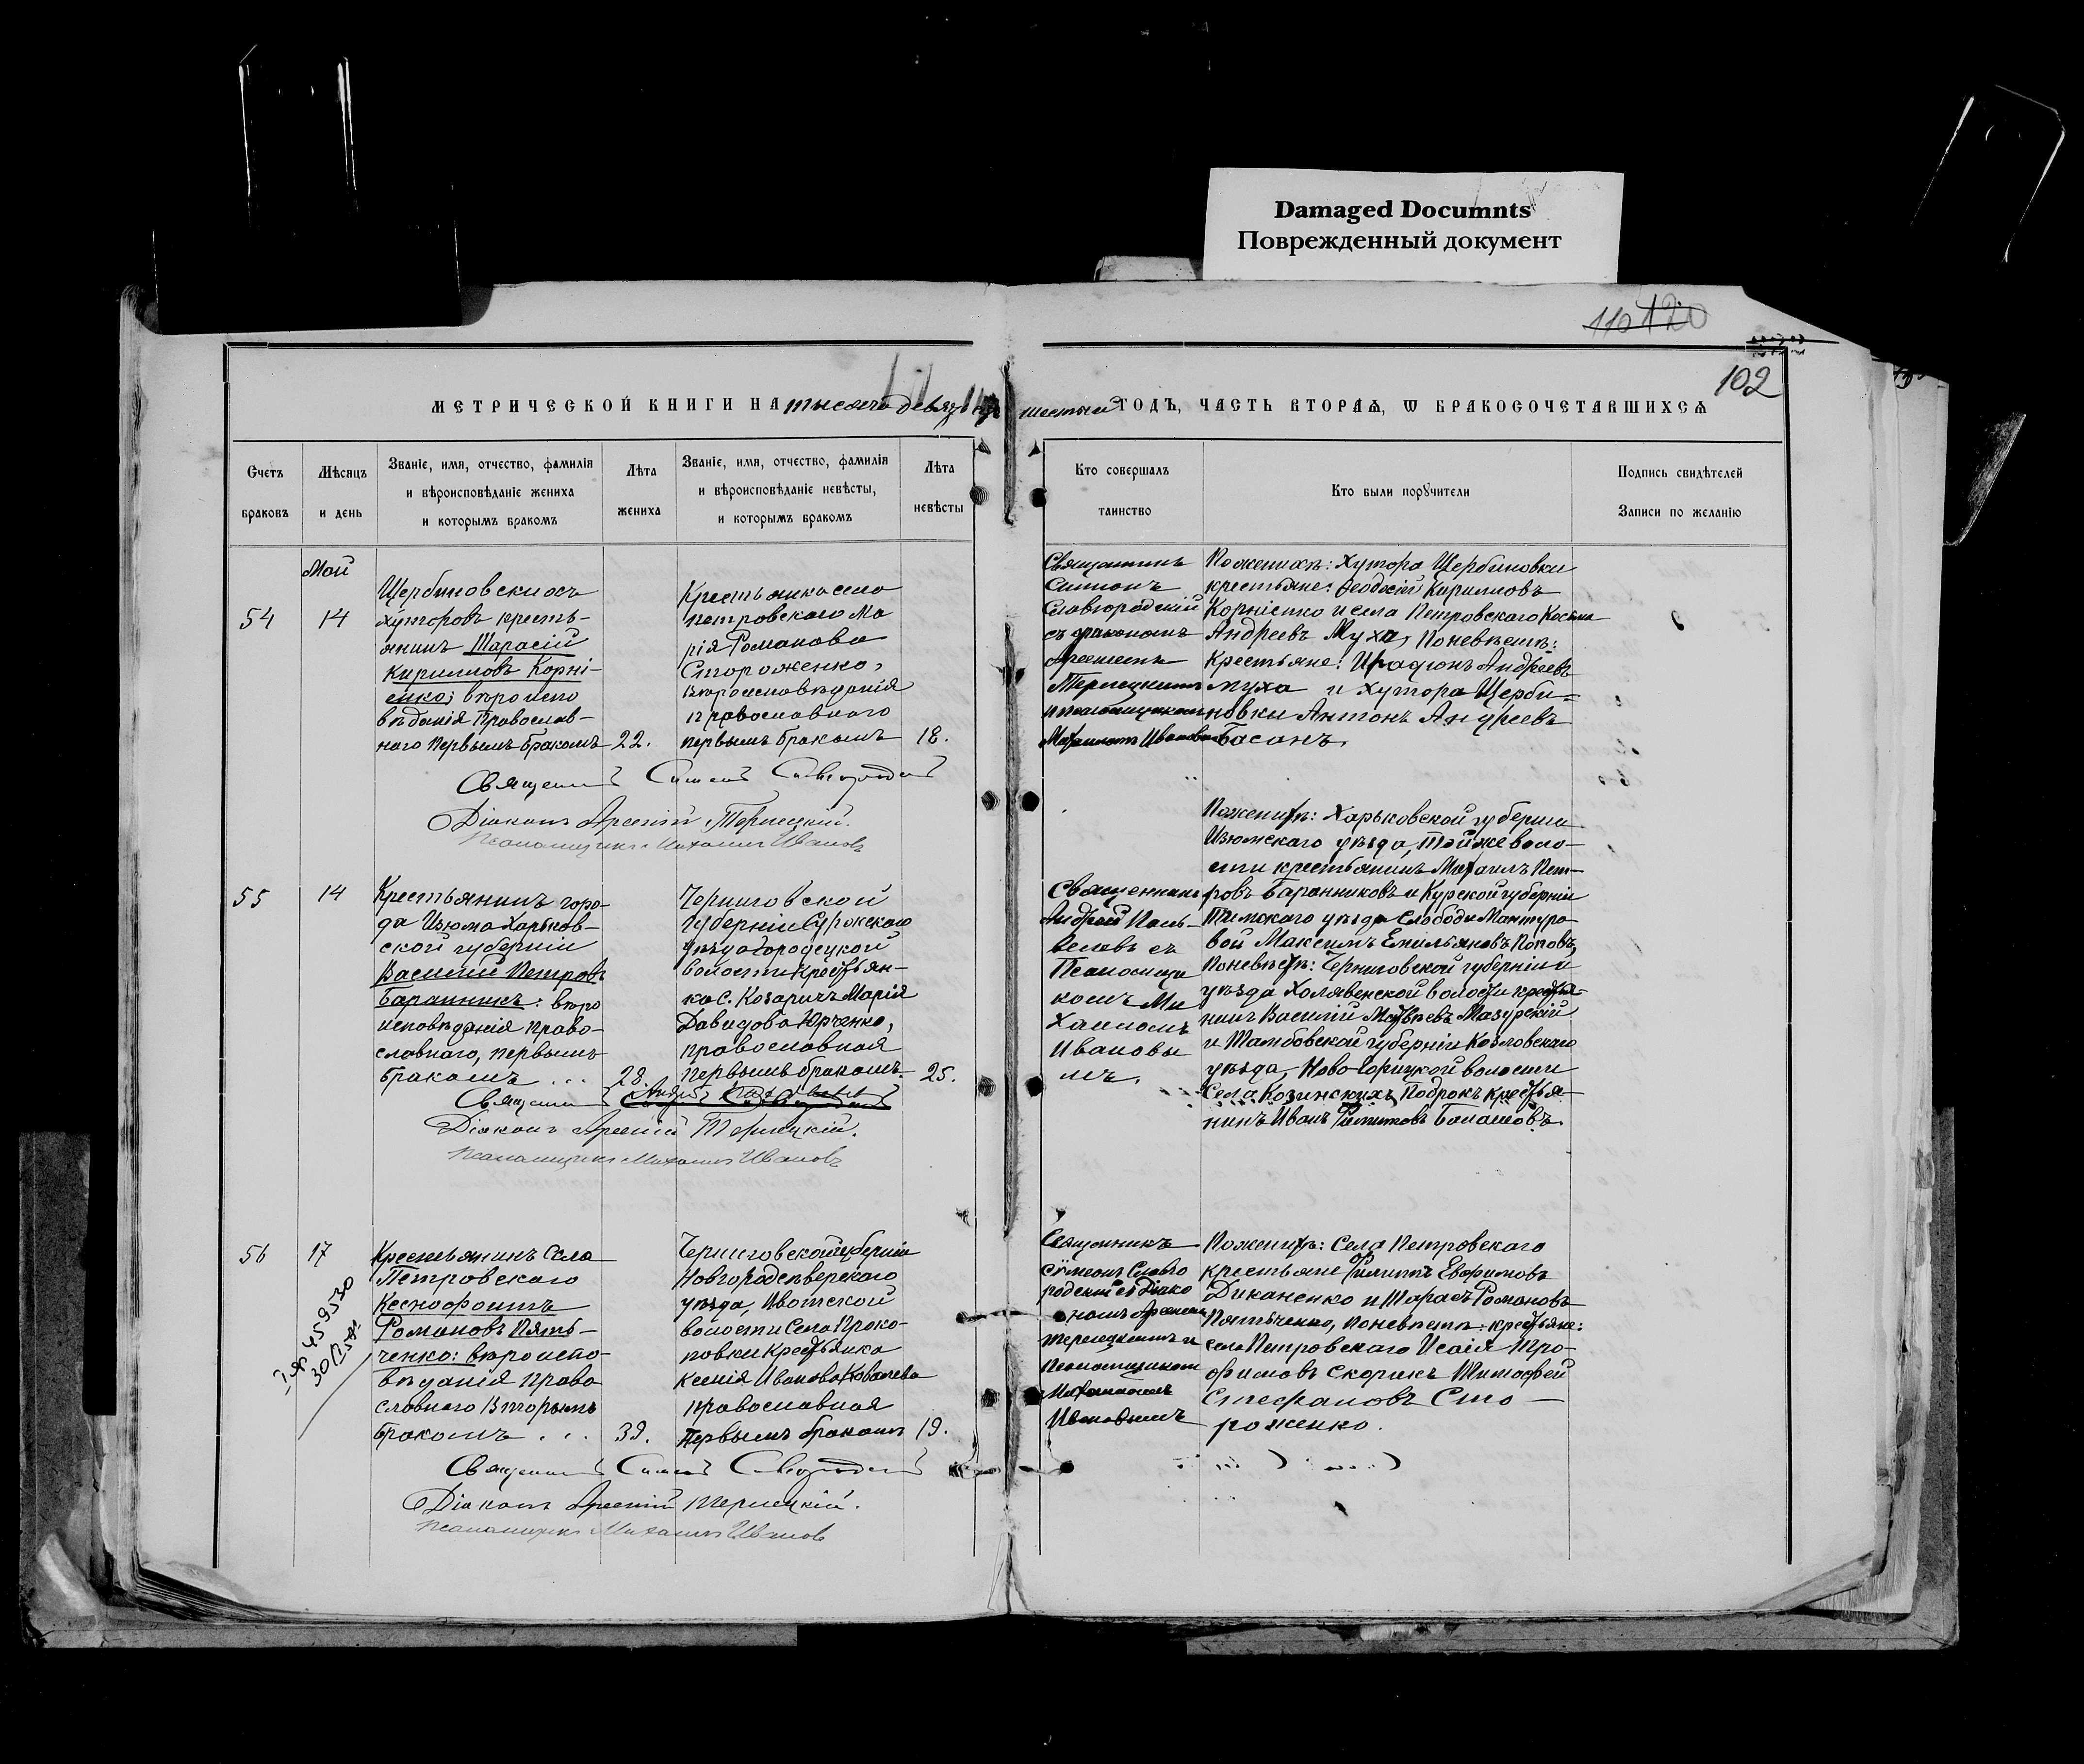 Damaged Documnts
Поврежденный документ
110 120
102
МЕТРИЧЕСКОЙ КНИГИ НА тысяча девят
шестый ГОДЪ, ЧАСТЬ ВТОРАЯ, Ѡ БРАКОСОЧЕТАВШИХСЯ
Счетъ браковъ
Мѣсяцъ и день
Званіе, имя, отчество, фамилія
и вѣроисповѣданіе жениха
и которымъ бракомъ
Лѣта жениха
Званіе, имя, отчество, фамилія
и вѣроисповѣданіе невѣсты,
и которымъ бракомъ
Лѣта невѣсты
Кто совершалъ таинство
Кто были порꙋчители
Подпись свидѣтелей
Записи по желанію
Май
54
14
Щербиновскихъ
хуторовъ кресть-
янинъ Тарасій
Кириловъ Корні-
енко; вѣроиспо
вѣданія Православ-
наго первымъ бракомъ
22.
Крестьянка села
Петровского Ма
рія Романова
Стороженко,
вѣроисповѣданія
православнаго
первымъ бракомъ
18.
Священникъ
Симеонъ
Славгородскій
съ діакономъ
Арсеніемъ
Терлецкимъ
и псаломщикомъ
Михаиломъ Ивановымъ
По женихѣ: Хутора Щербиновки
крестьяне: Ѳеодосій Кириловъ
Корніенко и села Петровского Косьма
Андреевъ Муха, По невѣстѣ:
Крестьяне: Иродіонъ Андреевъ
Муха и Хутора Щерби-
новки Антонъ Андреевъ
Басанъ.
Священникъ Симеонъ Славгородскій
Діаконъ Арсеній Терлецкій.
Псаломщикъ Михаилъ Ивановъ
55
14
Крестьянинъ горо-
да Изюма Харьков-
ской губерніи
Василій Петровъ
Баранникъ: вѣро
исповѣданія право-
славнаго, первымъ
бракомъ ...
28.
Черниговской
губерніи Сурожскаго
уѣзда Городецкой
волости крестьян-
ка с. Козаричъ Марія
Давидова Юрченко,
православная
первымъ бракомъ.
25.
Священникъ
Андрей
съ
Псаломщи
комъ Ми
хаиломъ
Ивановы
мъ.
По женихѣ: Харьковской губерніи
Изюмскаго уѣзда, той же воло-
сти крестьянинъ Михаилъ Пет-
ровъ Баранниковъ и Курской губерніи
Тимскаго уѣзда Слободы Мантуро-
вой Максимъ Емильяновъ Поповъ,
По невѣстѣ: Черниговской губерніи и
уѣзда Холявенской волости крестья-
нинъ Василій Матвѣевъ Мазурскій
и Тамбовской губерніи Козловскаго
уѣзда, Ново-Горицкой волости
Села Козинскихъ Подрокъ крестья-
нинъ Иванъ Филиповъ Балашовъ.
Священникъ Андрей
Діаконъ Арсеній Терлецкій.
Псаломщикъ Михаилъ Ивановъ
56
17
459530
30/
Крестьянинъ Села
Петровскаго
Ксенофонтъ
Романовъ Пять-
ченко: вѣроиспо-
вѣданія право
славнаго Вторымъ
бракомъ ...
39.
Черниговской губерніи
Новгородсѣверскаго
уѣзда, Ивотской
волости Села Проко-
повки Крестьянка
Ксенія Иванова Ковалева
православная
Первымъ бракомъ
19.
Священникъ
Сѵмеонъ Славго
родскій съ Діако
номъ Арсеніемъ
Терлецкимъ и
Псаломщикомъ
Михаиломъ
Ивановымъ
По женихѣ: Села Петровскаго
крестьяне Филиппъ Евфимовъ
Диканенко и Тарасъ Романовъ
Пятьченко, по невѣстѣ: крестьяне:
села Петровскаго Исаія Тро-
фимовъ Скорикъ Тимофей
Стефановъ Сто-
роженко.
Священникъ Симеонъ Славгородскій
Діаконъ Арсеній Терлецкій.
Псаломщикъ Михаилъ Ивановъ